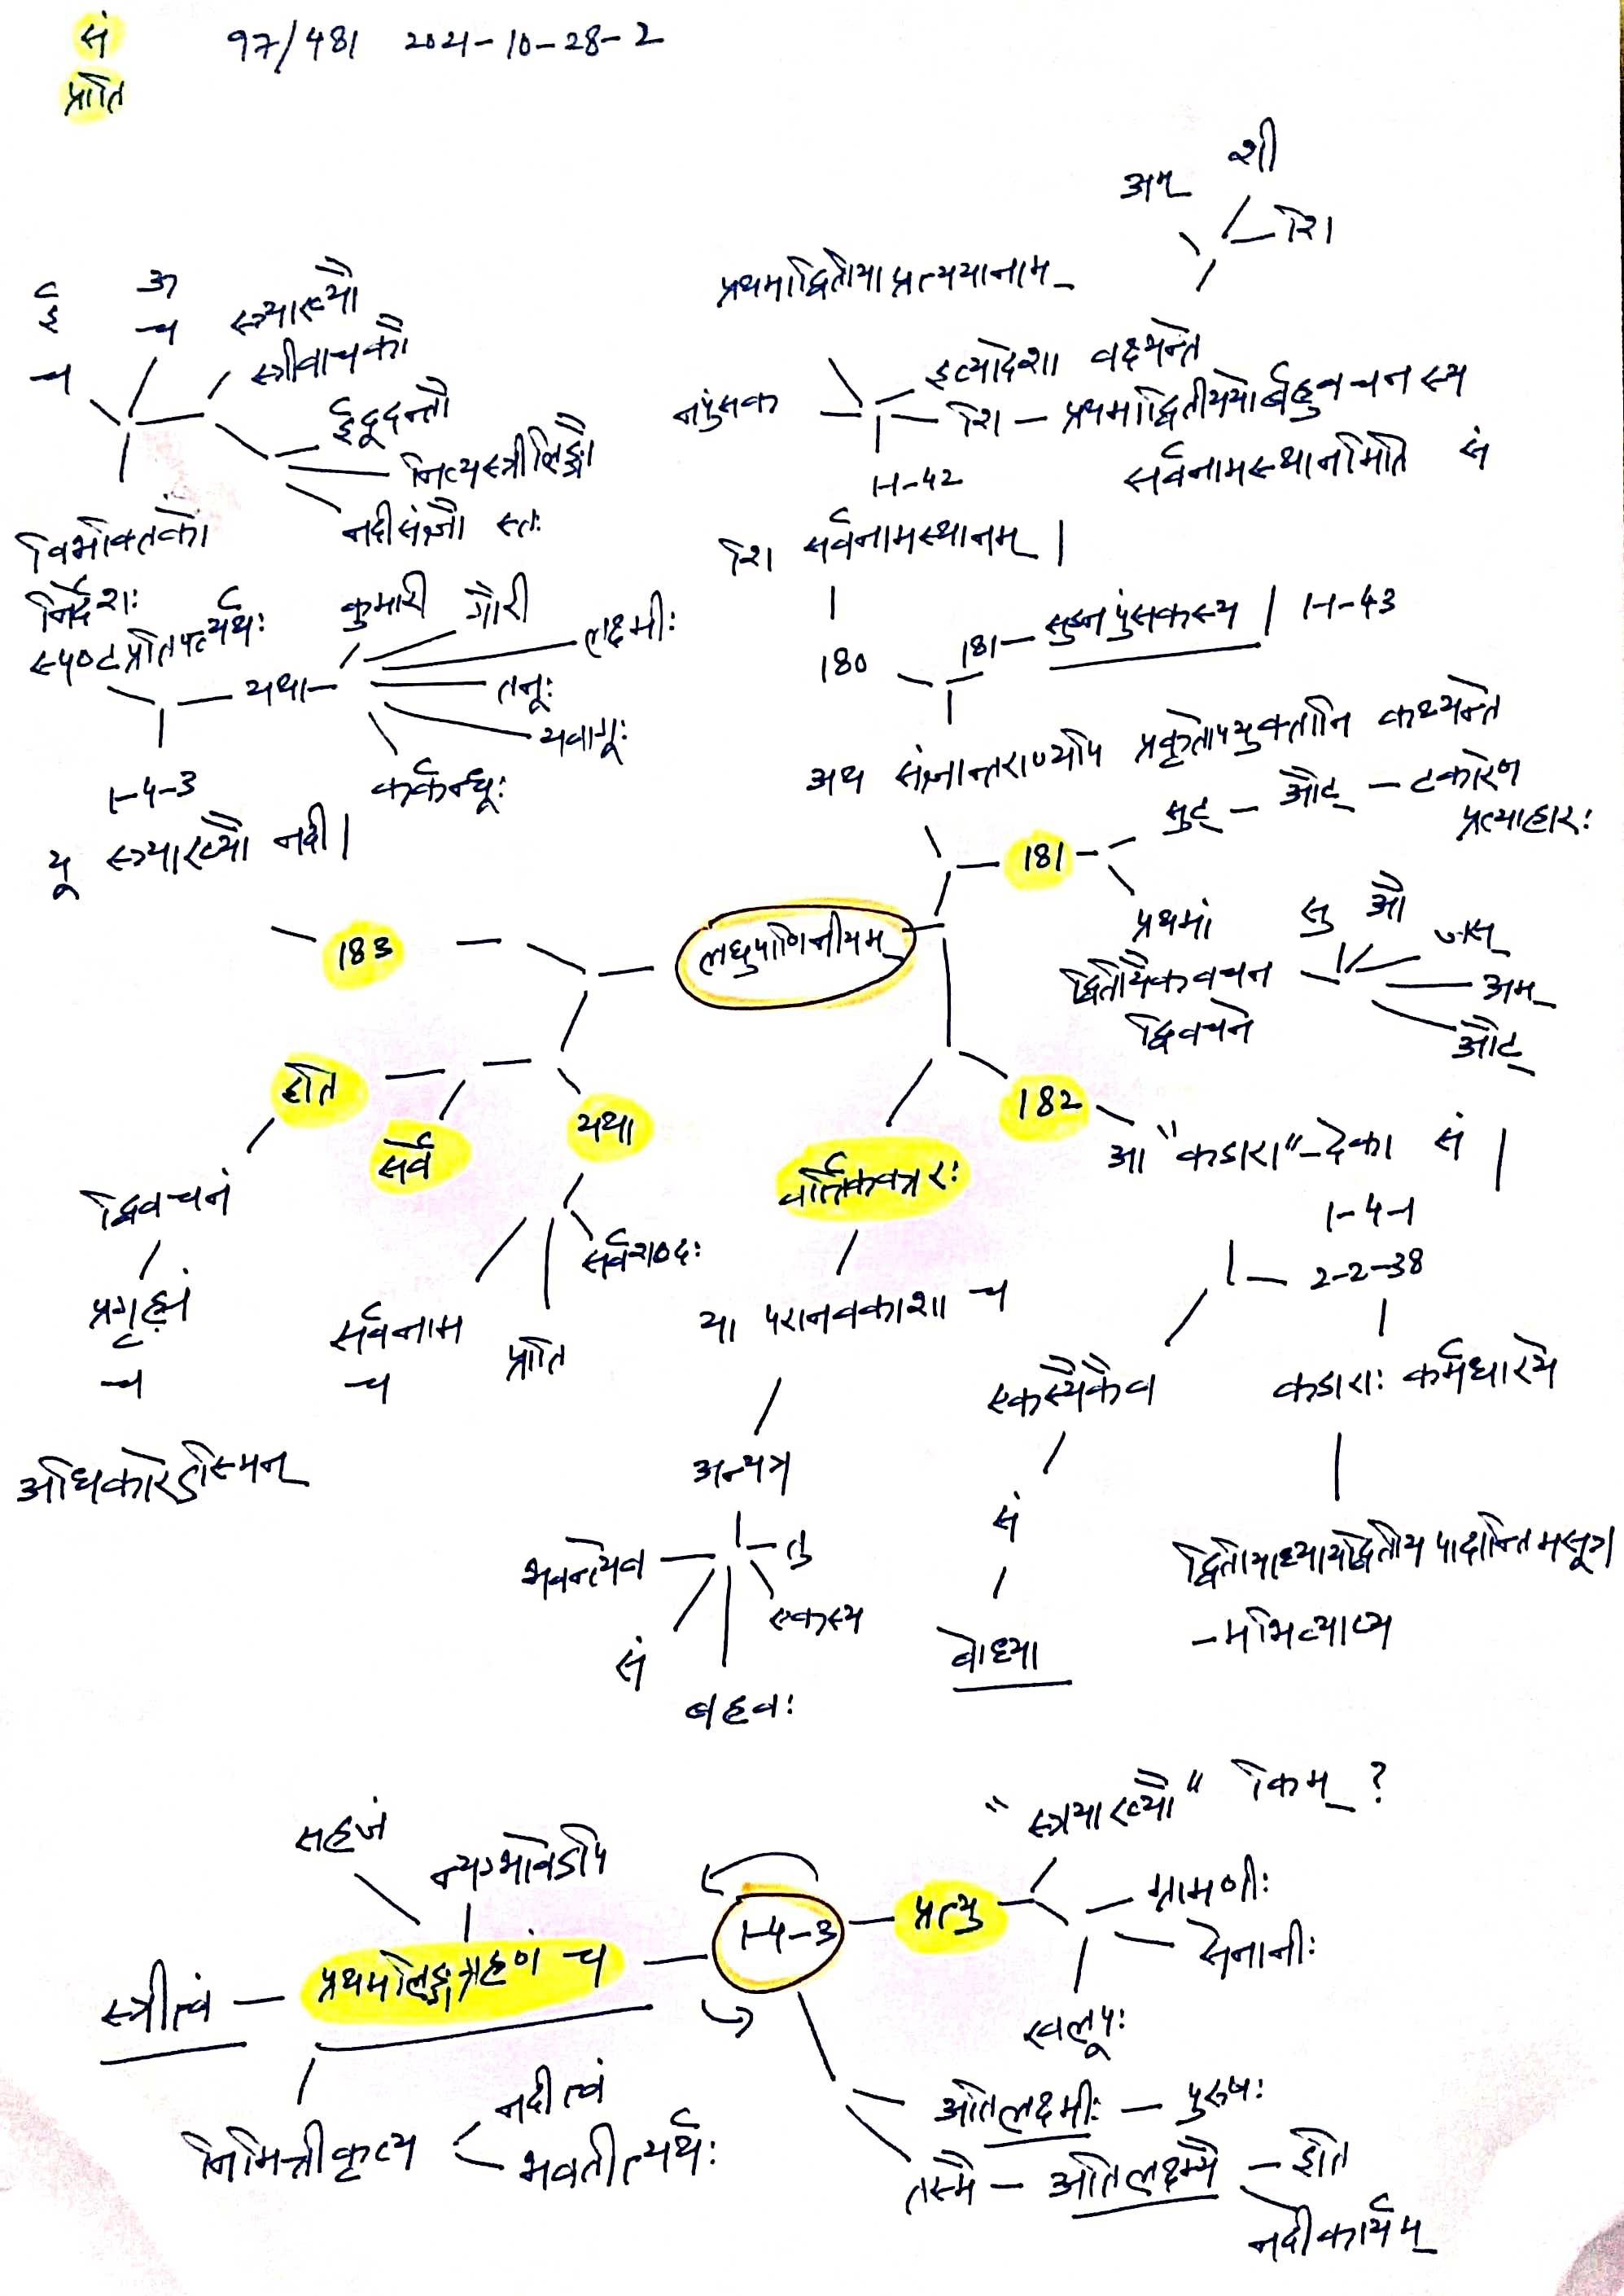 सं
प्रति
97/481 2021-10-28-2
अम् शी
शि
प्रथमाद्वितीयाप्रत्ययानाम्
नपुंसक
इत्यादेशा वक्ष्यन्ते
शि – प्रथमाद्वितीययोर्बहुवचनस्य
सर्वनामस्थानमिति सं
1-1-42
शि सर्वनामस्थानम् |
180
181 – सुडनपुंसकस्य | 1-1-43
अथ संज्ञान्तराण्यपि प्रकृतोपयुक्तानि कथ्यन्ते
ई च
ऊ च
स्त्र्याख्यौ
स्त्रीवाचकौ
ईदूदन्तौ
नित्यस्त्रीलिङ्गौ
नदीसंज्ञौ स्तः
विभक्तिको
निर्देशः
स्पष्टप्रतिपत्त्यर्थः
यथा
कुमारी गौरी
लक्ष्मीः
तनूः
यवागूः
कर्कन्धूः
1-4-3
यू स्त्र्याख्यौ नदी |
लघुपाणिनीयम्
181
सुट् – औट् – टकारेण
प्रत्याहारः
प्रथमा
द्वितीयैकवचन
द्विवचने
सु औ
जस्
अम्
औट्
182
आ "कडारा"-देका सं |
1-4-1
2-2-38
कडाराः कर्मधारये
द्वितीयाध्यायद्वितीयपादान्तिमसूत्र
-मभिव्याप्य
एकस्यैकैव
सं
बोध्या
वार्तिककारः
या परानवकाशा च
अन्यत्र
तु
एकस्य
बहवः
सं
भवन्त्येव
183
यथा
सर्वशब्दः
प्रति
सर्वनाम
च
सर्व
इति
द्विवचनं
प्रगृह्यं
च
अधिकारेऽस्मिन्
1-4-3
प्रत्यु
"स्त्र्याख्यौ" किम् ?
ग्रामणीः
सेनानीः
खलपूः
अतिलक्ष्मीः – पुरुषः
तस्मै – अतिलक्ष्म्यै – इति
नदीकार्यम्
प्रथमलिङ्गग्रहणं च
सहजं
न्यग्भावेऽपि
स्त्रीत्वं
निमित्तीकृत्य
नदीत्वं
भवतीत्यर्थः